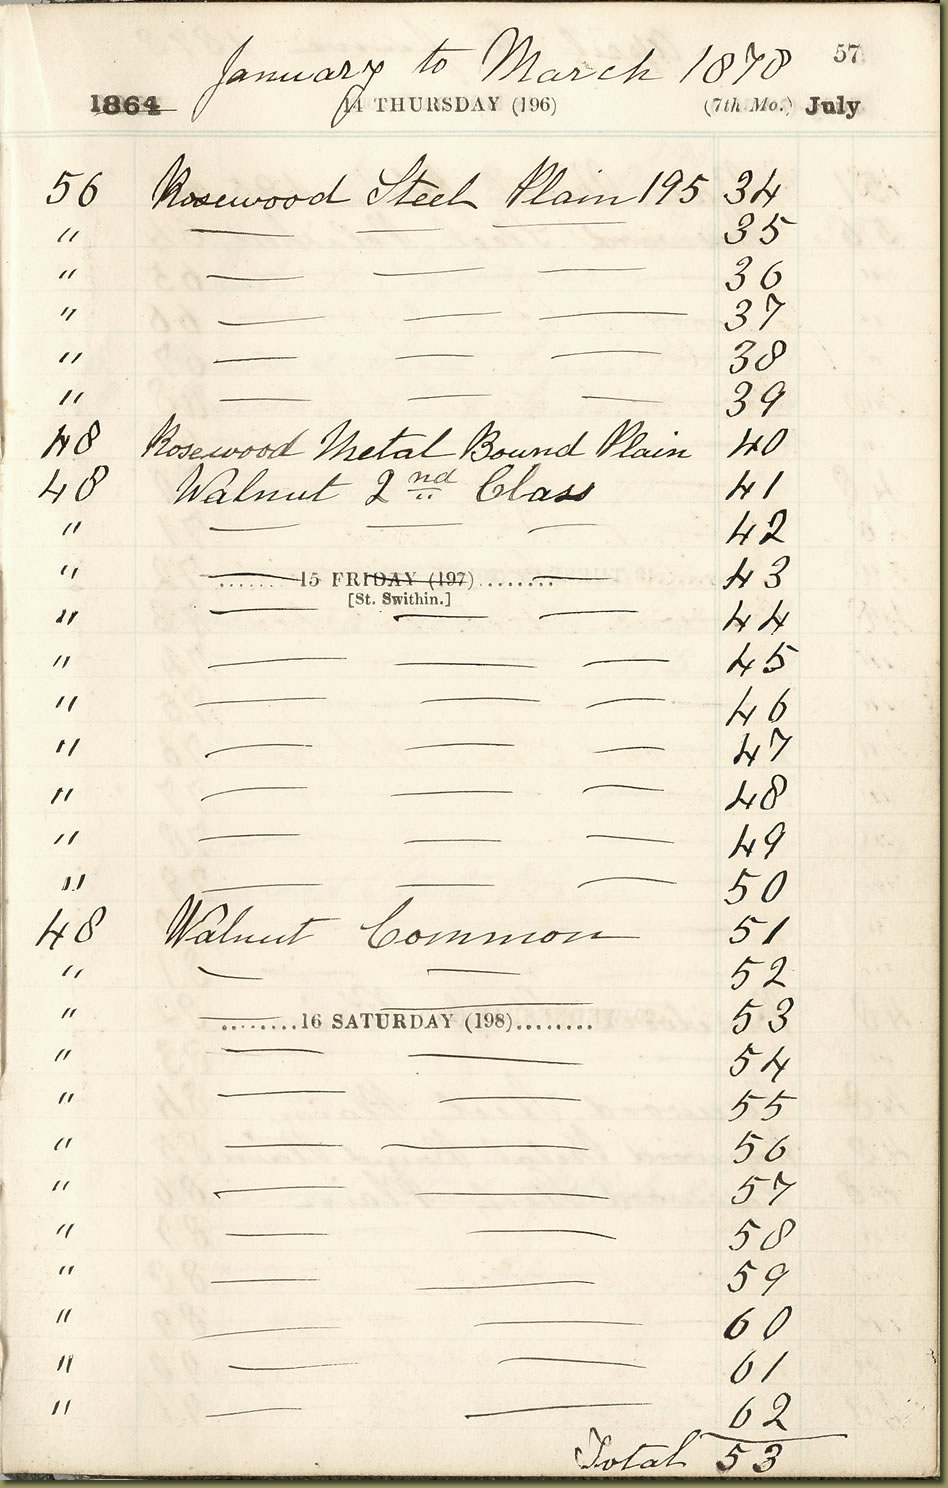 57
January to March 1878
1864 14 THURSDAY (196) (7th Mo.) July
56 Rosewood Steel Plain 195 34
" — — — 35
" — — — 36
" — — — 37
" — — — 38
" — — — 39
48 Rosewood Metal Bound Plain 40
48 Walnut 2nd Class 41
" — — — 42
" — ........15 FRIDAY (197)........ — 43
[St. Swithin.]
" — — — 44
" — — — 45
" — — — 46
" — — — 47
" — — — 48
" — — — 49
" — — — 50
48 Walnut Common 51
" — — 52
" — — 53
........16 SATURDAY (198)........
" — — 54
" — — 55
" — — 56
" — — 57
" — — 58
" — — 59
" — — 60
" — — 61
" — — 62
Total 53